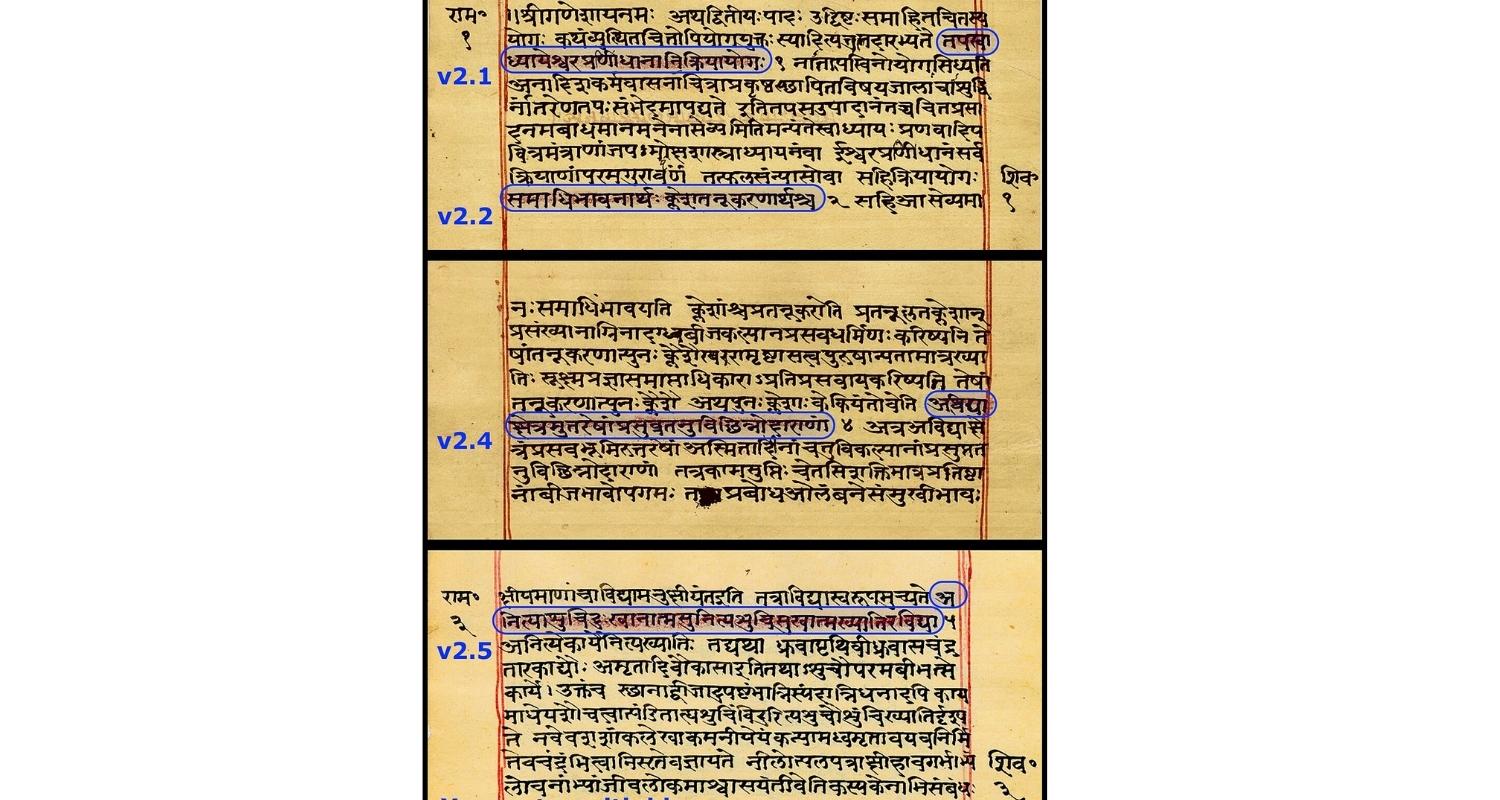 राम॰ ॥श्रीगणेशायनमः अथद्वितीयःपादः उद्दिष्टःसमाहितचित्तस्य
१ योगः कथंव्युत्थितचित्तोपियोगयुक्तः स्यादित्येतदारभ्यते तपःस्वा
ध्यायेश्वरप्रणीधानानिक्रियायोगः १ नातपस्विनोयोगःसिध्यति
v2.1
अनादिक्लेशकर्मवासनाचित्रा विषयजाला
नांतरेणतपःसंभेदमापद्यते इतितपसउपादानंतच्चचितप्रसा
दनमबाधमानमनेनासेव्यमितिमन्यंतेस्वाध्यायः प्रणवादिप
वित्रमंत्राणांजपःमोक्षशास्त्राध्यायनंवा ईश्वरप्रणीधानंसर्व
क्रियाणांपरमगुरावर्पणं तत्फलसंन्यासोवा सहिक्रियायोगः शिव॰
समाधिभावनार्थः क्लेशतनूकरणार्थश्च २ सहिआसेव्यमा १
v2.2
नःसमाधिंभावयति क्लेशांश्चप्रतनूकरोति प्रतनूकृतक्लेशान्
प्रसंख्यानाग्निनादग्धबीजकल्पानप्रसवधर्मिणःकरिष्यति ते
षांतनूकरणात्पुनःक्लेशैरपरामृष्टासत्वपुरुषान्यतामात्रख्या
तिः सूक्ष्मप्रज्ञासमाप्ताधिकाराऽप्रतिप्रसवायकरिष्यति तेषां
तनूकरणात्पुनःक्लेशै अथपुनःक्लेशाःके कियंतोवेति अविद्या
क्षेत्रमुतरेषांप्रसुप्ततनुविछिन्नोदाराणां ४ अत्रअविद्याक्षे
v2.4
त्रंप्रसवभूमिरुत्तरेषां अस्मितादिनांचतुर्विकल्पानांप्रसुप्तत
नुविछिन्नोदाराणां तत्रकाप्रसुप्तिः चेतसिशक्तिमात्रप्रतिष्ठा
नांबीजभावोपगमः प्रबोधआलंबनेसंमुखीभावः
राम॰ क्षीयमाणांचाविद्यामनुक्षीयंतइति तत्राविद्यास्वरूपमुच्यते अ
३ नित्याशुचिदुःखानात्मसुनित्यशुचिसुखात्मख्यातिरविद्या ५
v2.5
अनित्येकार्येनित्यख्यातिः तद्यथा ध्रुवापृथिवीध्रुवासचंद्र
तारकाद्यौः अमृतादिवौकसाइतितथाऽशुचौपरमबीभत्से
काये। उक्तंच स्थानाद्बीजादुपष्टंभान्निस्पंदान्निधनादपि काय
माधेयशौचत्वात्पंडिताह्यशुचिंविदुरित्यशुचौशुचिख्यातिर्दृश्य
ते नवेवशशांकलेखाकमनीयेयंकन्यामध्वमृतावयवनिर्मि
तेवचंद्रंभित्वानिसृतेवज्ञायते नीलोत्पलपत्राक्षीहावगर्भाभ्यां शिव॰
लोचनाभ्यांजीवलोकमाश्वासयंतीवेतिकस्यकेनाभिसंबंधः ३